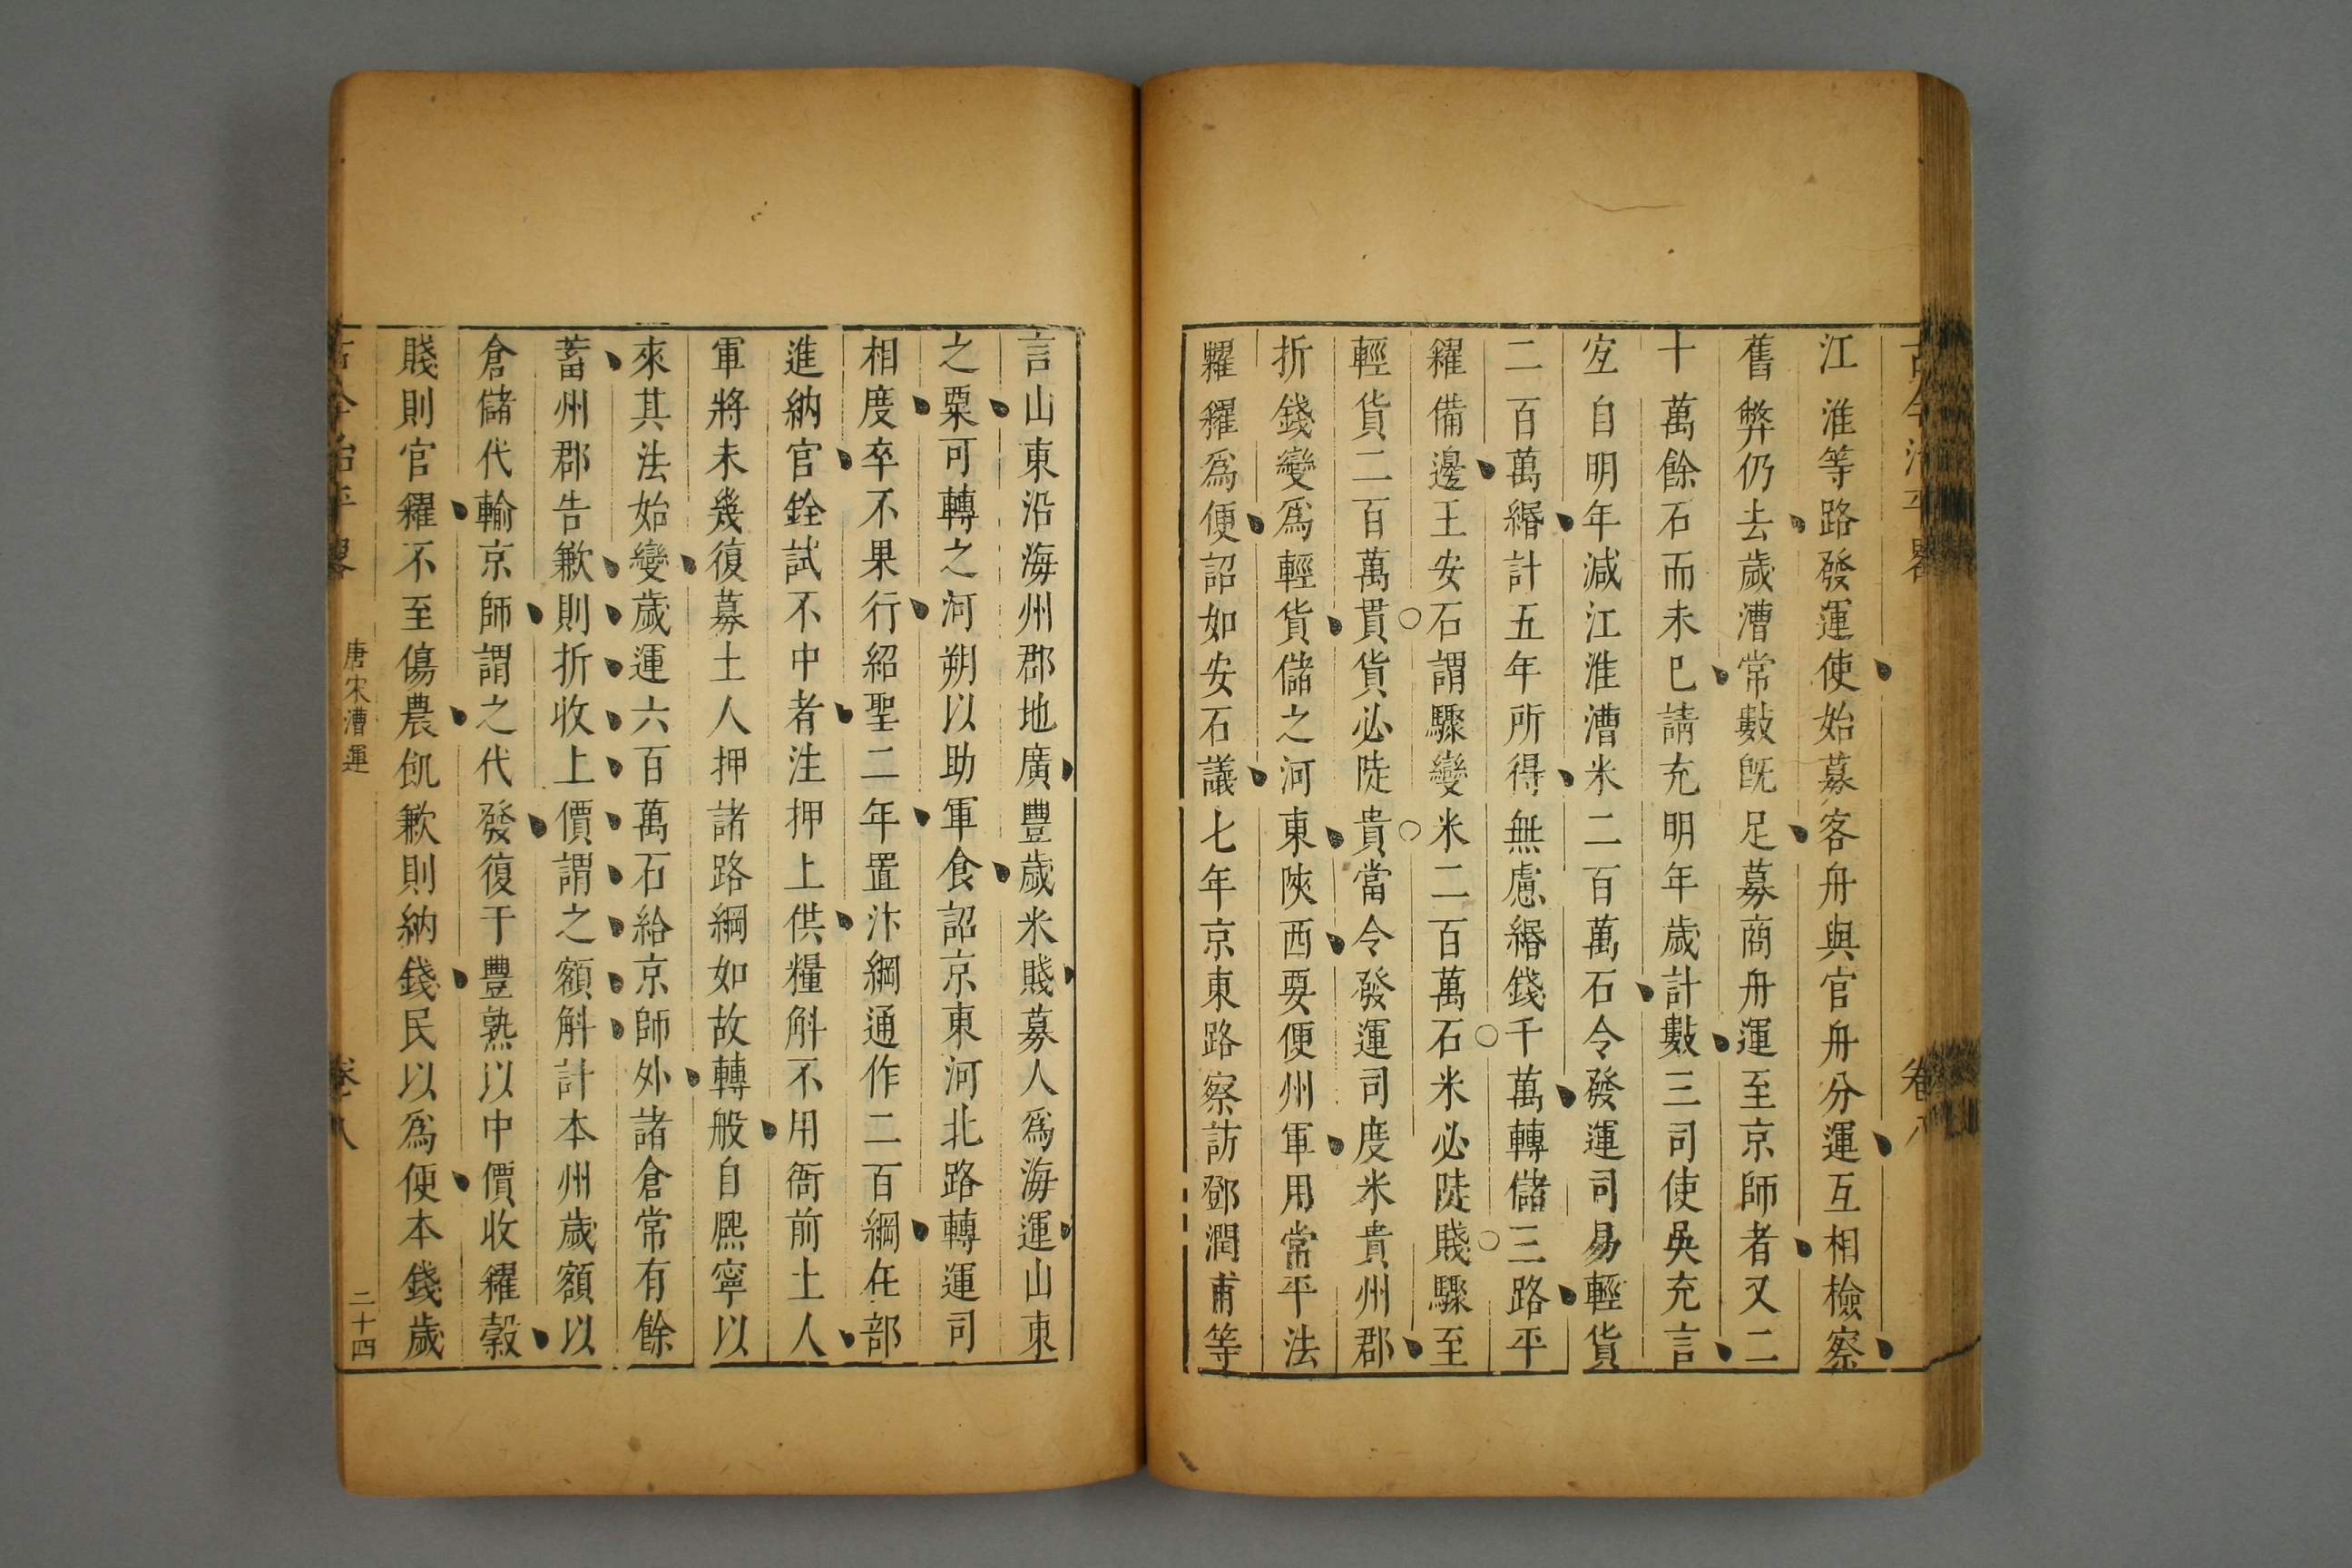 古今治平畧
卷八
江淮等路發運使始募客舟與官舟分運互相檢察
舊弊仍去歲漕常數旣足募商舟運至京師者又二
十萬餘石而未已請充明年歲計數三司使吳充言
宜自明年減江淮漕米二百萬石令發運司易輕貨
二百萬緡計五年所得無慮緡錢千萬轉儲三路平
糴備邊王安石謂驟變米二百萬石米必陡賤驟至
輕貨二百萬貫貨必陡貴當令發運司度米貴州郡
折錢變爲輕貨儲之河東陝西要便州軍用常平法
糶糴爲便詔如安石議七年京東路察訪鄧潤甫等
言山東沿海州郡地廣豐歲米賤募人爲海運山東
之粟可轉之河朔以助軍食詔京東河北路轉運司
相度卒不果行紹聖二年置汴綱通作二百綱在部
進納官銓試不中者注押上供糧斛不用衙前土人
軍將未幾復募土人押諸路綱如故轉般自熙寧以
來其法始變歲運六百萬石給京師外諸倉常有餘
蓄州郡告歉則折收上價謂之額斛計本州歲額以
倉儲代輸京師謂之代發復于豐熟以中價收糴穀
賤則官糴不至傷農飢歉則納錢民以爲便本錢歲
古今治平畧
唐宋漕運
卷八
二十四